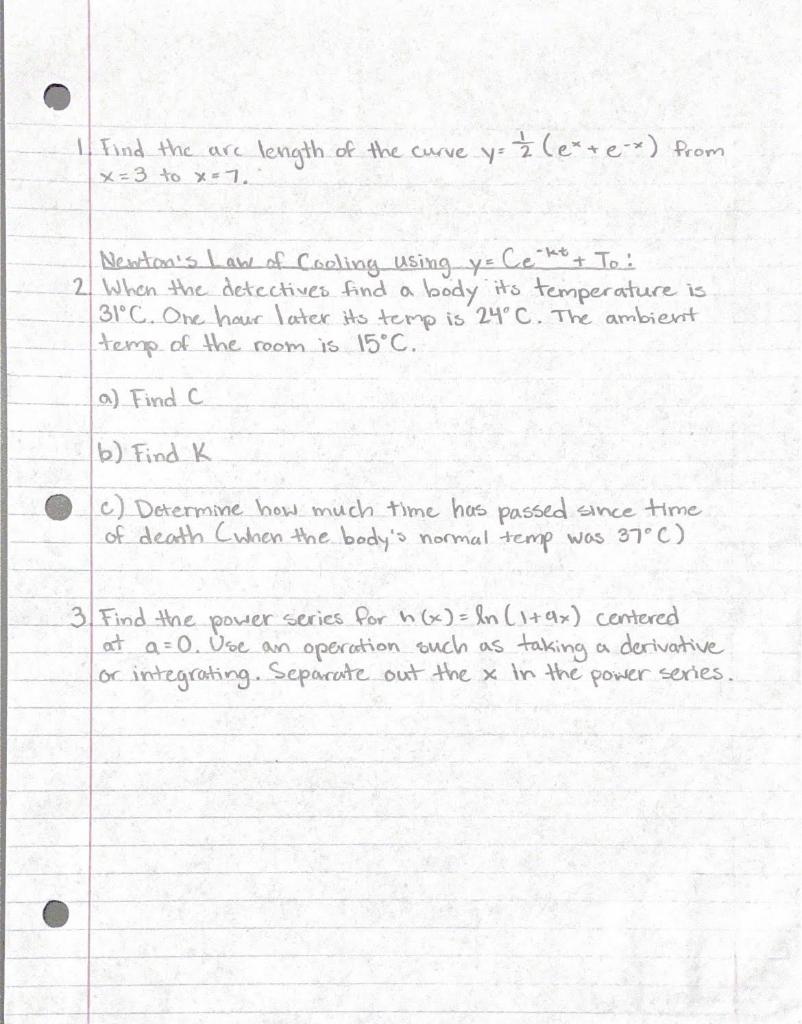 1. Find the arc length of the curve y= 1/2 (e^x + e^-x) from
x=3 to x=7.
Newton's Law of Cooling using y= Ce^-kt + To:
2. When the detectives find a body its temperature is
31°C. One hour later its temp is 24°C. The ambient
temp of the room is 15°C.
a) Find C
b) Find K
c) Determine how much time has passed since time
of death (when the body's normal temp was 37°C)
3. Find the power series for h(x) = ln(1+9x) centered
at a=0. Use an operation such as taking a derivative
or integrating. Separate out the x in the power series.